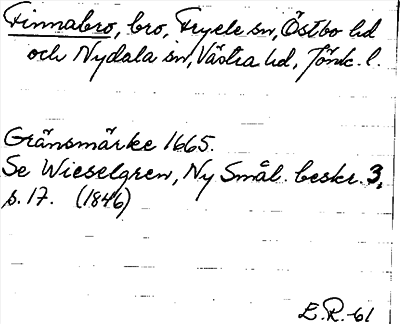 Finnabro, bro, Fryele sn, Östbo hd
och Nydala sn, Västra hd, Jönk. l.
Gränsmärke 1665.
Se Wieselgren, Ny Smål. beskr. 3,
s. 17. (1846)
E.R.-61